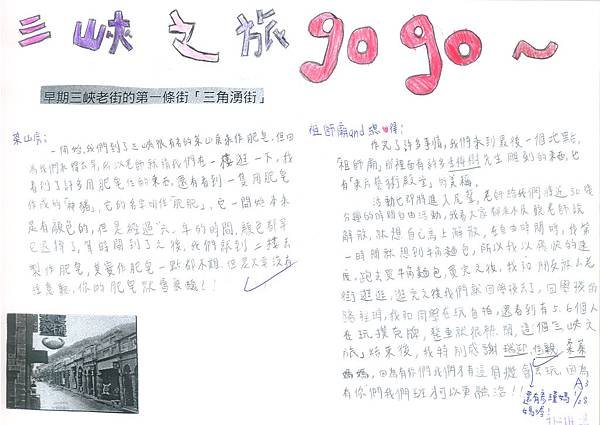 三峽之旅gogo~
早期三峽老街的第一條街「三角湧街」
茶山房:
一開始,我們到了三峽很有名的茶山房來作肥皂,但因
為我們來得太早,所以老師就請我們在一樓逛一下,我
看到了許多用肥皂作的東西,還有看到一隻用肥皂
作成的「神豬」,它的名字叫作「肥肥」,它一開始本來
是有顏色的,但是經過
的時間,顏色都早
已退掉了,等時間到了之後,我們就到二樓去
製作肥皂,其實作肥皂一點都不難,但是只要沒有
注意點,你的肥皂就會
祖師廟and總♥得:
作完了許多事情,我們來到最後一個地點,
「祖師廟」,那裡面有許多李梅樹先生雕刻的東西,也
有「東方藝術殿堂」的美稱。
活動也即將進入尾聲,老師給我們將近30幾
分鐘的時間自由活動,我看大家都
老師說
解散,就想自己馬上解散,在自由時間時,我第
一時間就想到牛角麵包,所以我以很快的速
度,跑去買牛角麵包,買完之後,我和朋友就去老
街逛逛,逛完之後我們就回學校去了,回學校的
路程時,我和同學在玩自拍,還看到有5、6個人
在玩撲克牌,整車就很熱鬧,這個「三峽之
旅」結束後,我特別感謝
媽媽,因為有你們我們才有這個機會去玩,因為
有你們我們班可以更融洽!!